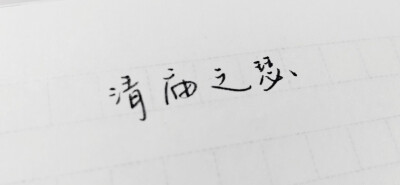 清庙之瑟、